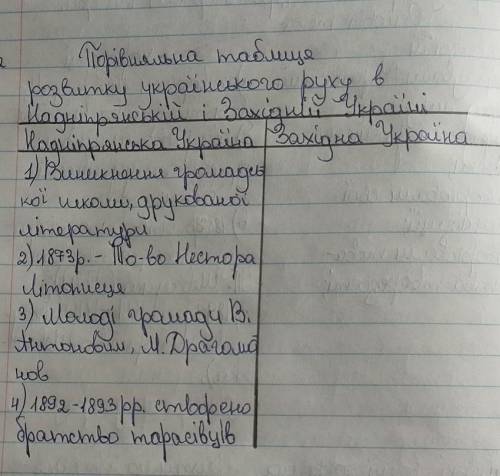 Порівняльна таблиця
розвитку українського руху в
Надніпрянській і Західній Україні
Надніпрянська Україна Західна Україна
1) Виникнення громадсь
кої школи, друкованої
літератури
2) 1873р. - То-во Нестора
Літописця
3) Молоді громади В.
Антонович, М. Драгома
нов
4) 1892-1893 рр. створено
братство тарасівців